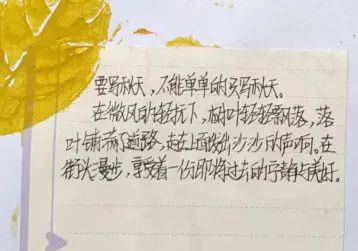 要写秋天，不能单单的只写秋天。
在微风的轻抚下，树叶轻轻飘落，落
叶铺满了道路，走在上面发出沙沙的声响。在
街头漫步，享受着一份即将过去的宁静与美好。